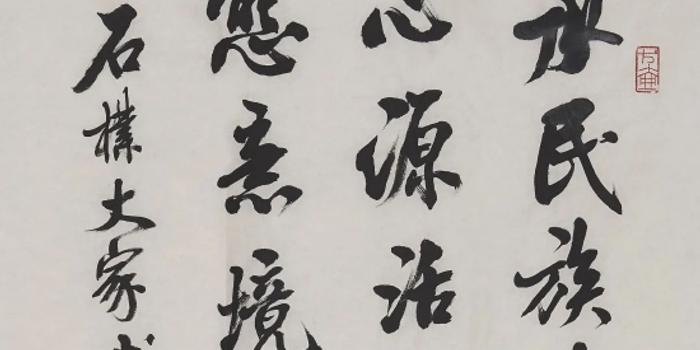 民族
心源活
態意境
石樸大家